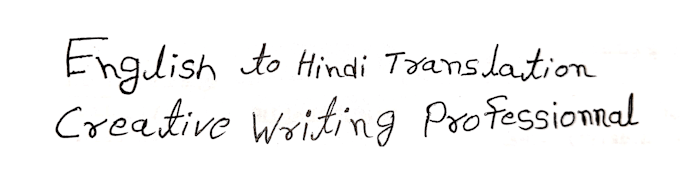 English to Hindi Translation
Creative Writing Professionnal